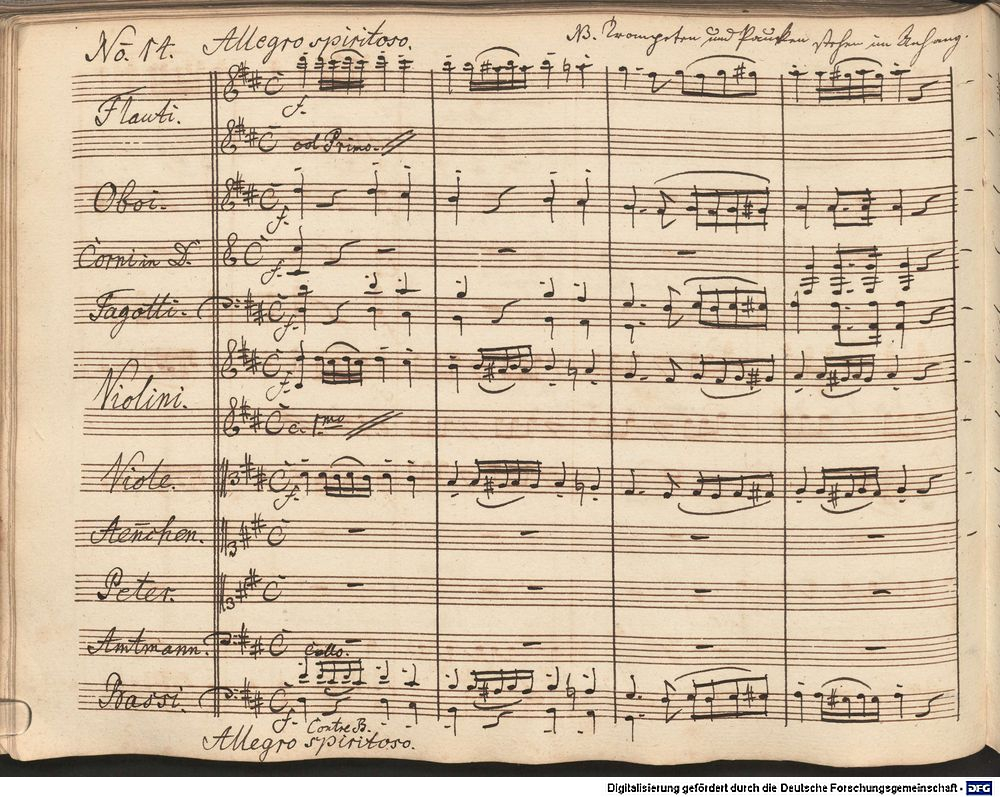 No. 14. Allegro spiritoso. NB. Trompeten und Paucken stehen im Anhang.
Flauti. f.
col Primo.
Oboi. f.
Corni in D. f.
Fagotti. f.
Violini. f.
c. 1mo
Viole. f.
Aen̄chen.
Peter.
Amtmann.
Cello.
Bassi. f.
Contre B.
Allegro spiritoso.
Digitalisierung gefördert durch die Deutsche Forschungsgemeinschaft - DFG